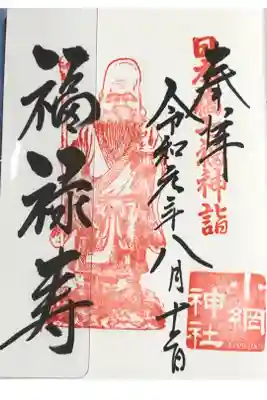 奉拝
日本橋七福神詣
令和元年八月十二日
福禄寿
小網神社